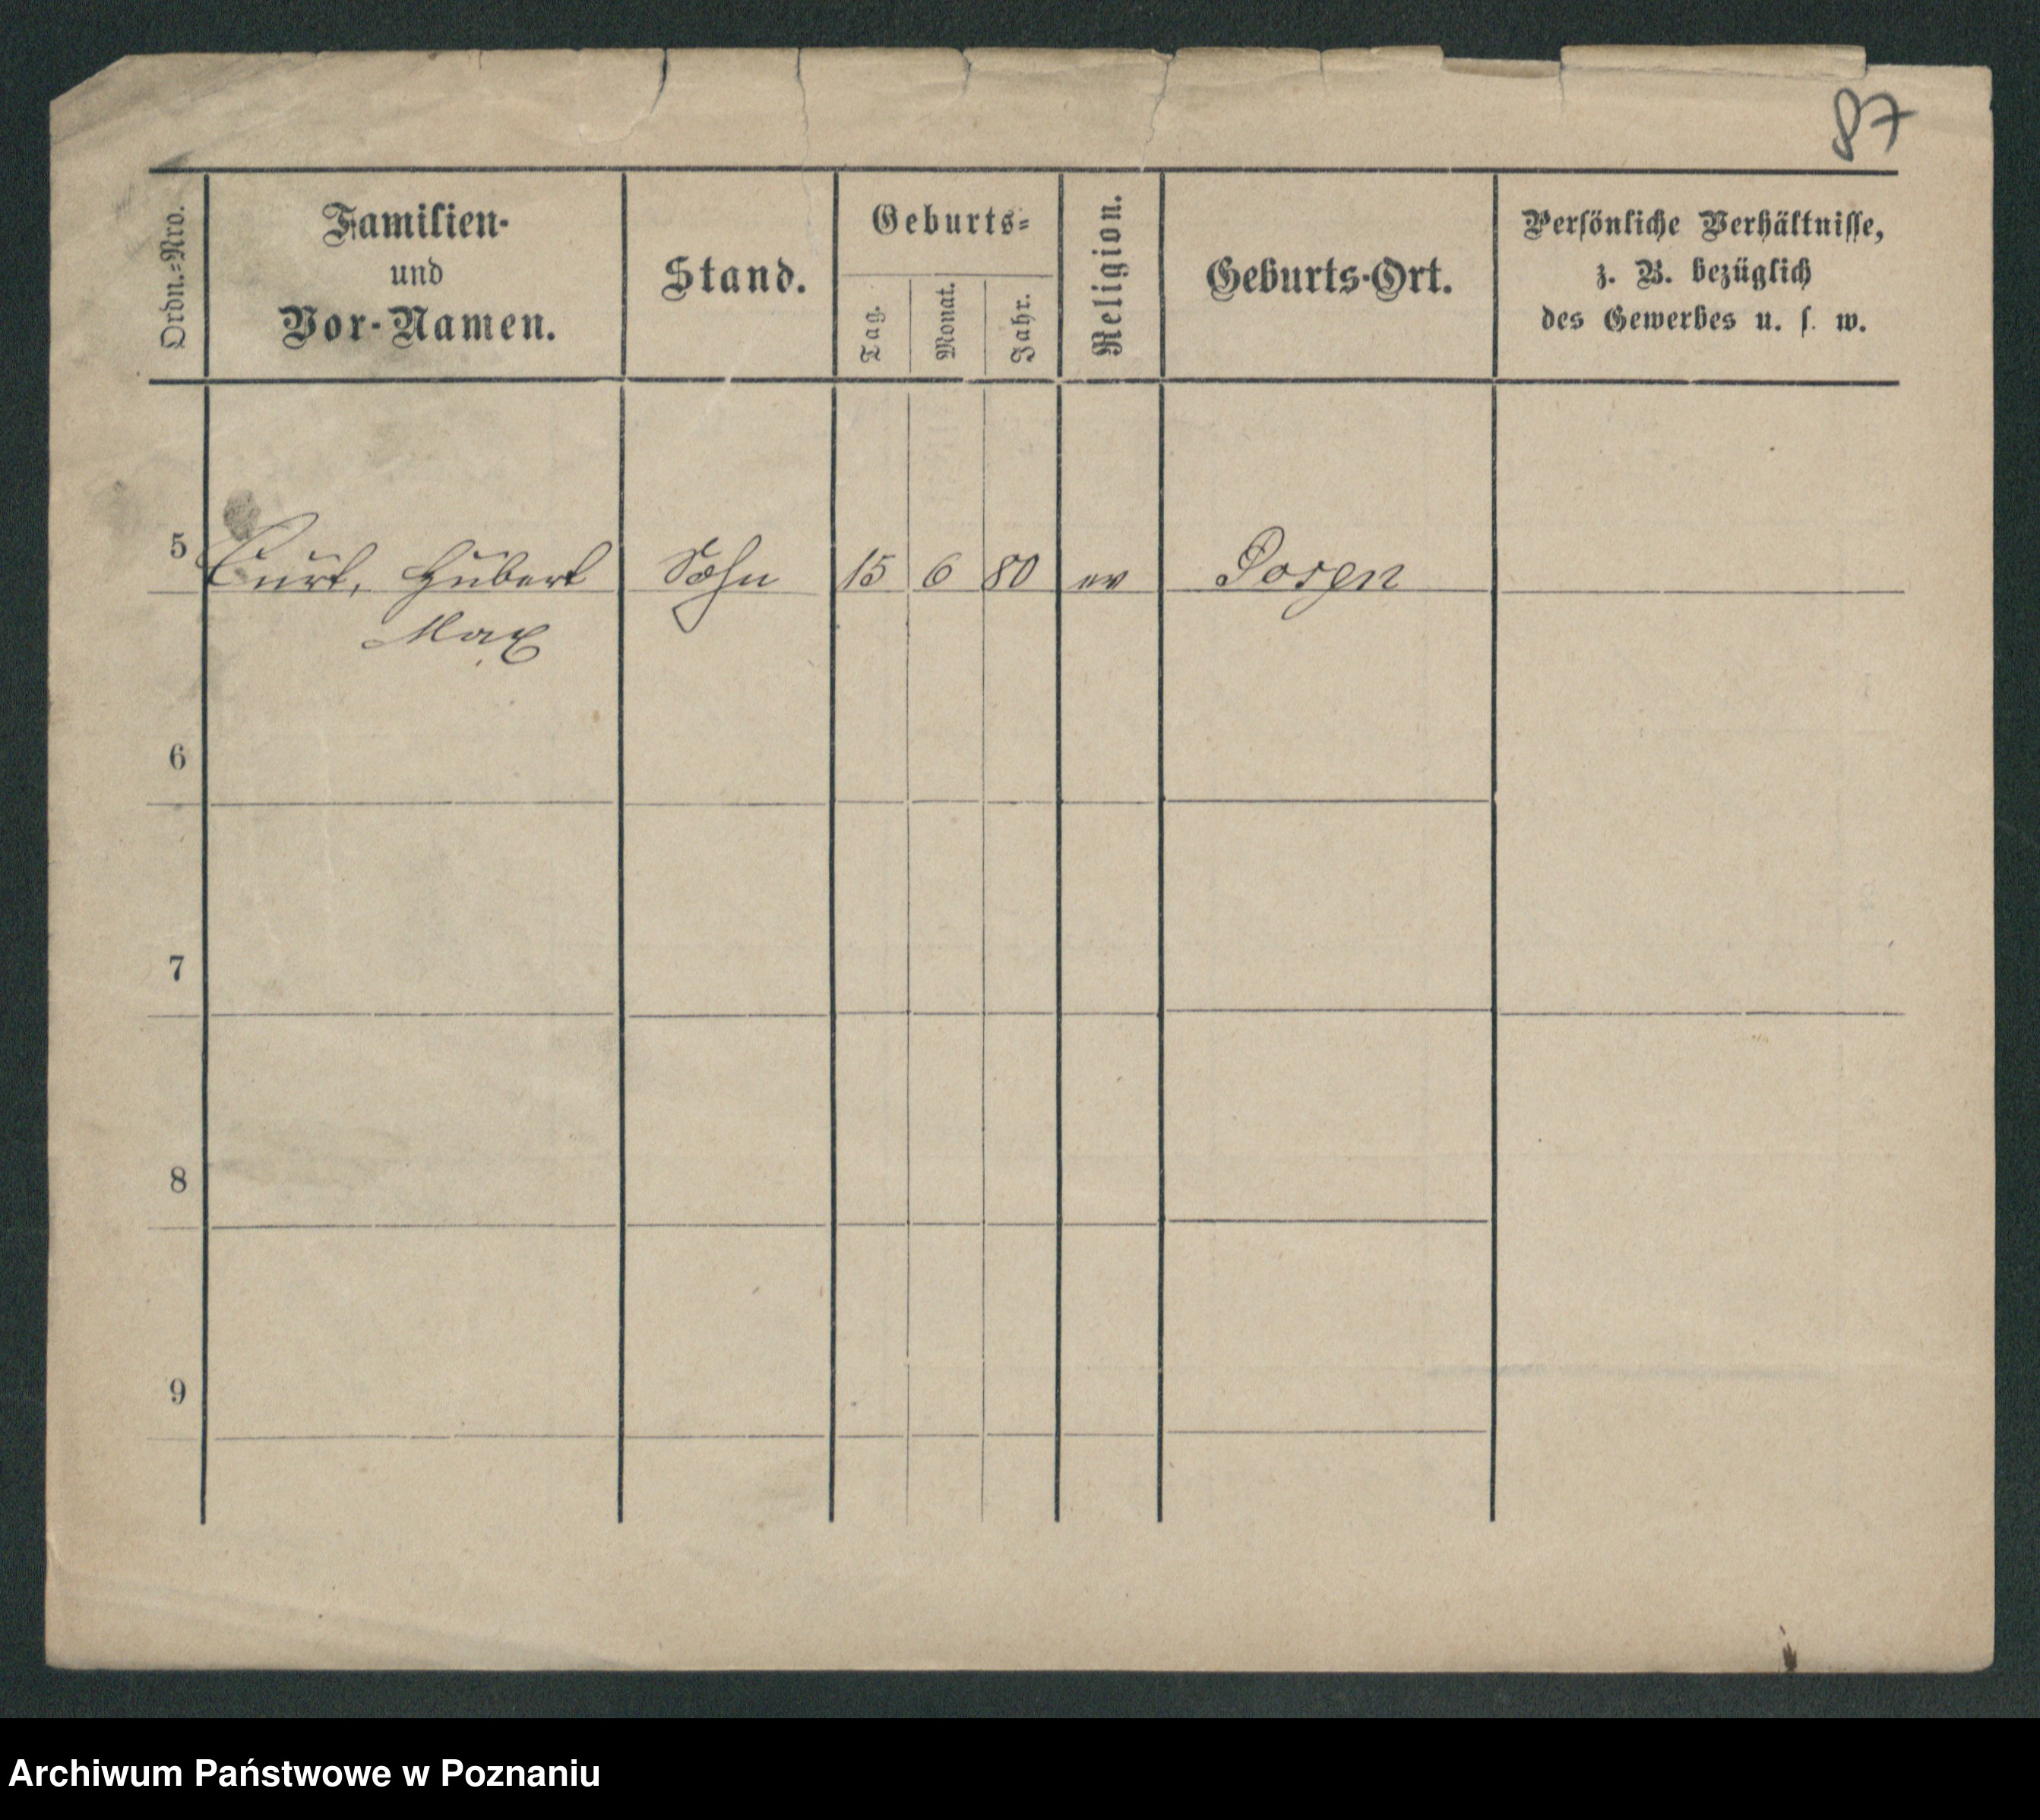 87
Ordn.=Nro.
Familien-
und
Vor-Namen.
Stand.
Geburts=
Tag.
Monat.
Jahr.
Religion.
Geburts-Ort.
Persönliche Verhältnisse,
z. B. bezüglich
des Gewerbes u. s. w.
5 Curt, Hubert Sohn 15 6 80 ev Posen
Max
6
7
8
9
Archiwum Państwowe w Poznaniu